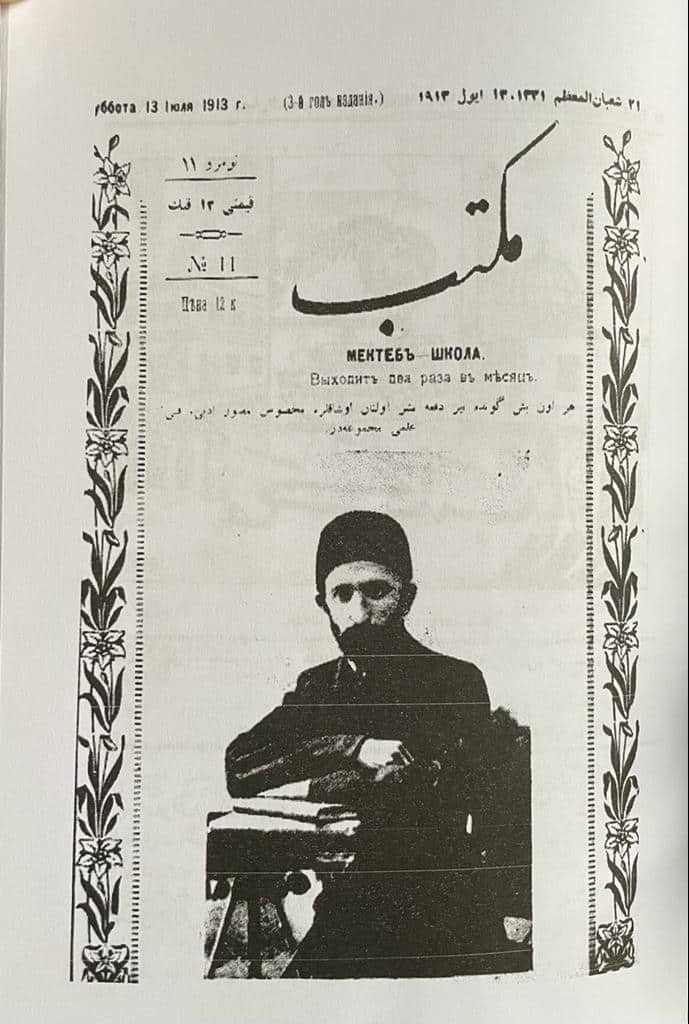 уббота 13 Іюля 1913 г. (3-й годъ изданія.) ٢١ شعبان المعظم ١٣٣١، ١٣ ایول ١٩١٣
نومرو ١١
قیمتی ١٢ قپك
№ 11
Цѣна 12 к
مکتب
МЕКТЕБЪ—ШКОЛА.
Выходитъ два раза въ мѣсяцъ.
هر اون بش گونده بیر دفعه نشر اولنان اوشاقلره مخصوص مصور ادبی، فنی
علمی مجموعه‌در.